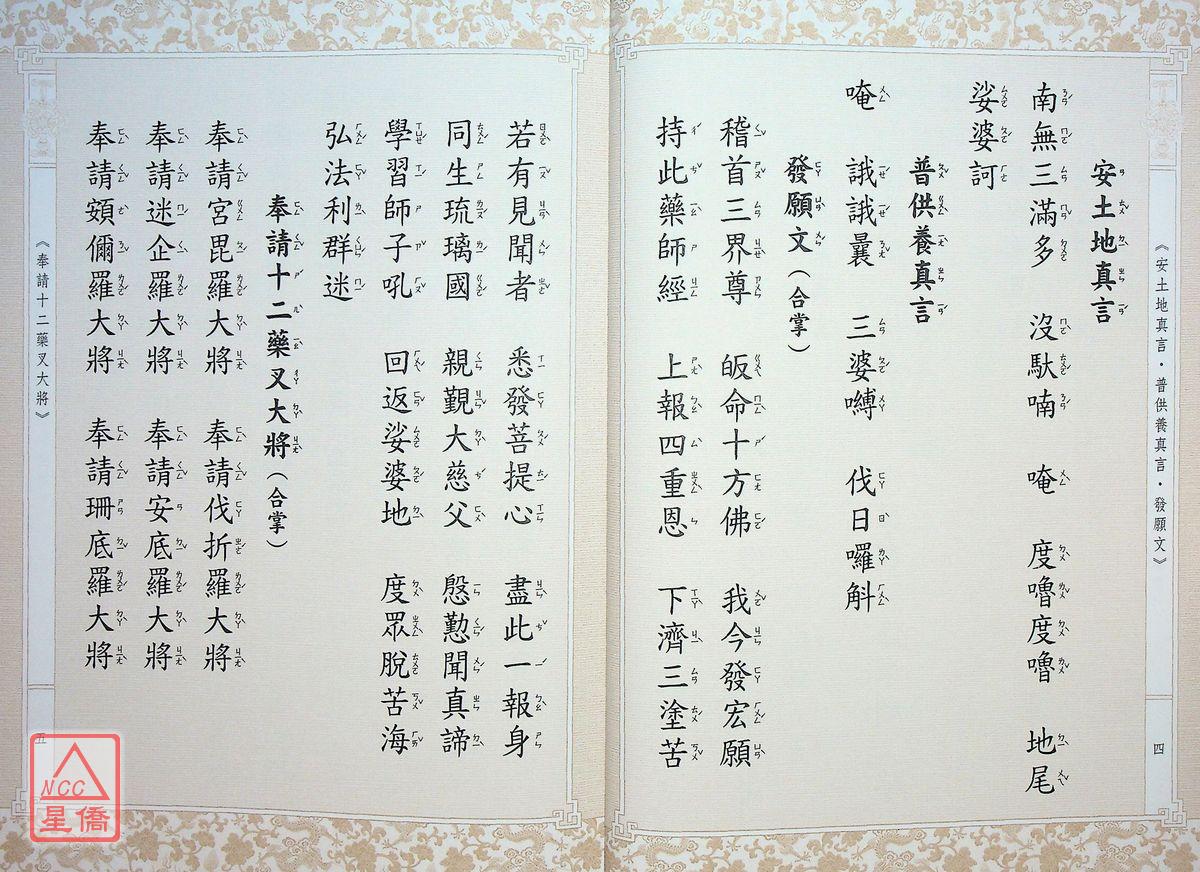 《安土地真言・普供養真言・發願文》
四
安土地真言
南無三滿多　沒馱喃　唵　度嚕度嚕　地尾
娑婆訶
普供養真言
唵　誐誐曩　三婆嚩　伐日囉斛
發願文（合掌）
稽首三界尊　皈命十方佛　我今發宏願
持此藥師經　上報四重恩　下濟三塗苦
若有見聞者　悉發菩提心　盡此一報身
同生琉璃國　親覲大慈父　慇懃聞真諦
學習師子吼　回返娑婆地　度眾脫苦海
弘法利群迷
奉請十二藥叉大將（合掌）
奉請宮毘羅大將　奉請伐折羅大將
奉請迷企羅大將　奉請安底羅大將
奉請頞儞羅大將　奉請珊底羅大將
《奉請十二藥叉大將》
五
NCC
星僑